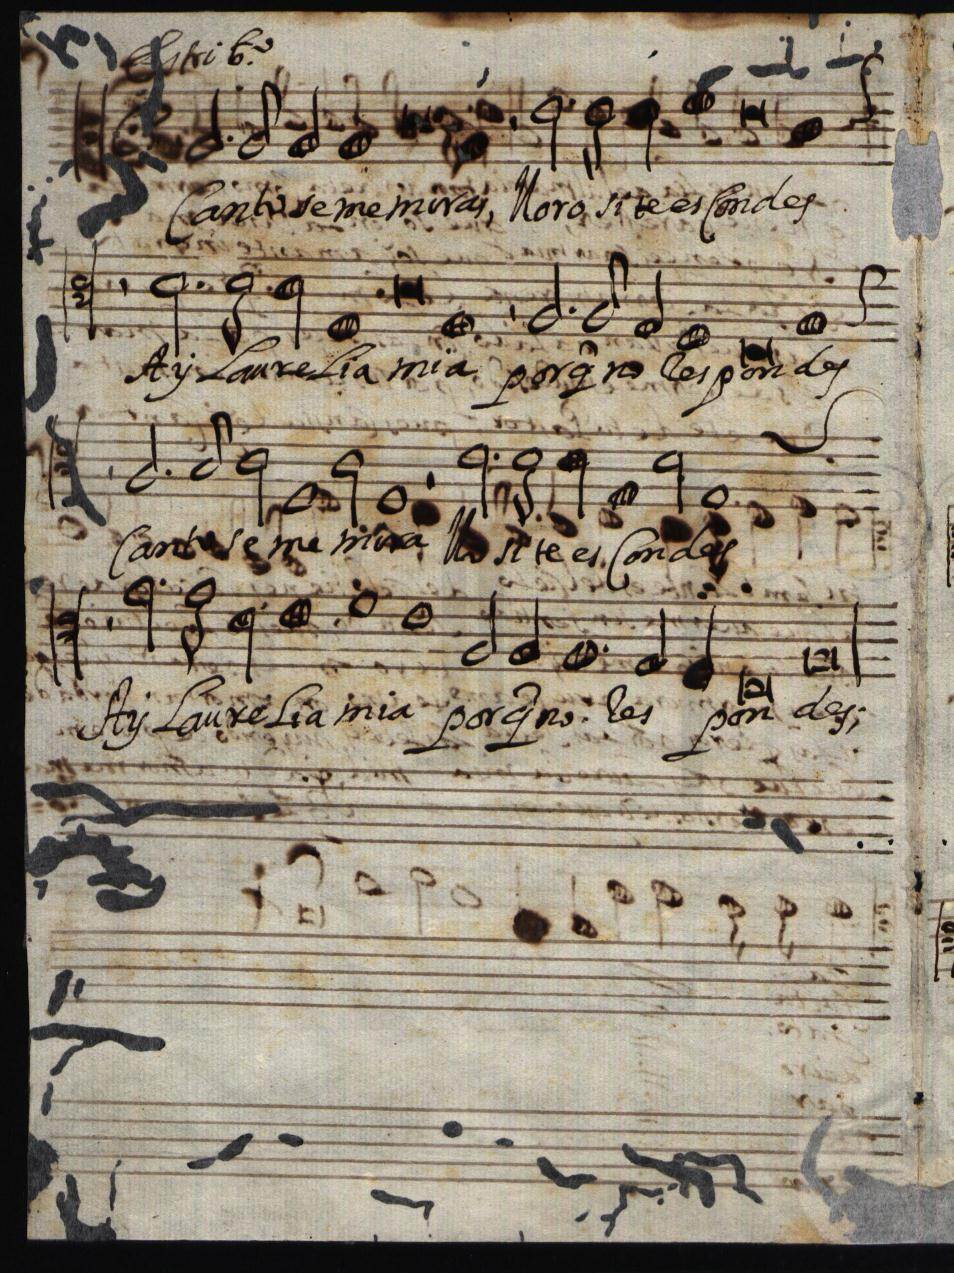 Estribº
Canto se me miras, lloro si te escondes
Ay Laurelia mia porq̃ no respondes
Canto se me mira llo si te escondes
Ay Laurelia mia porq̃ no. res pon des;